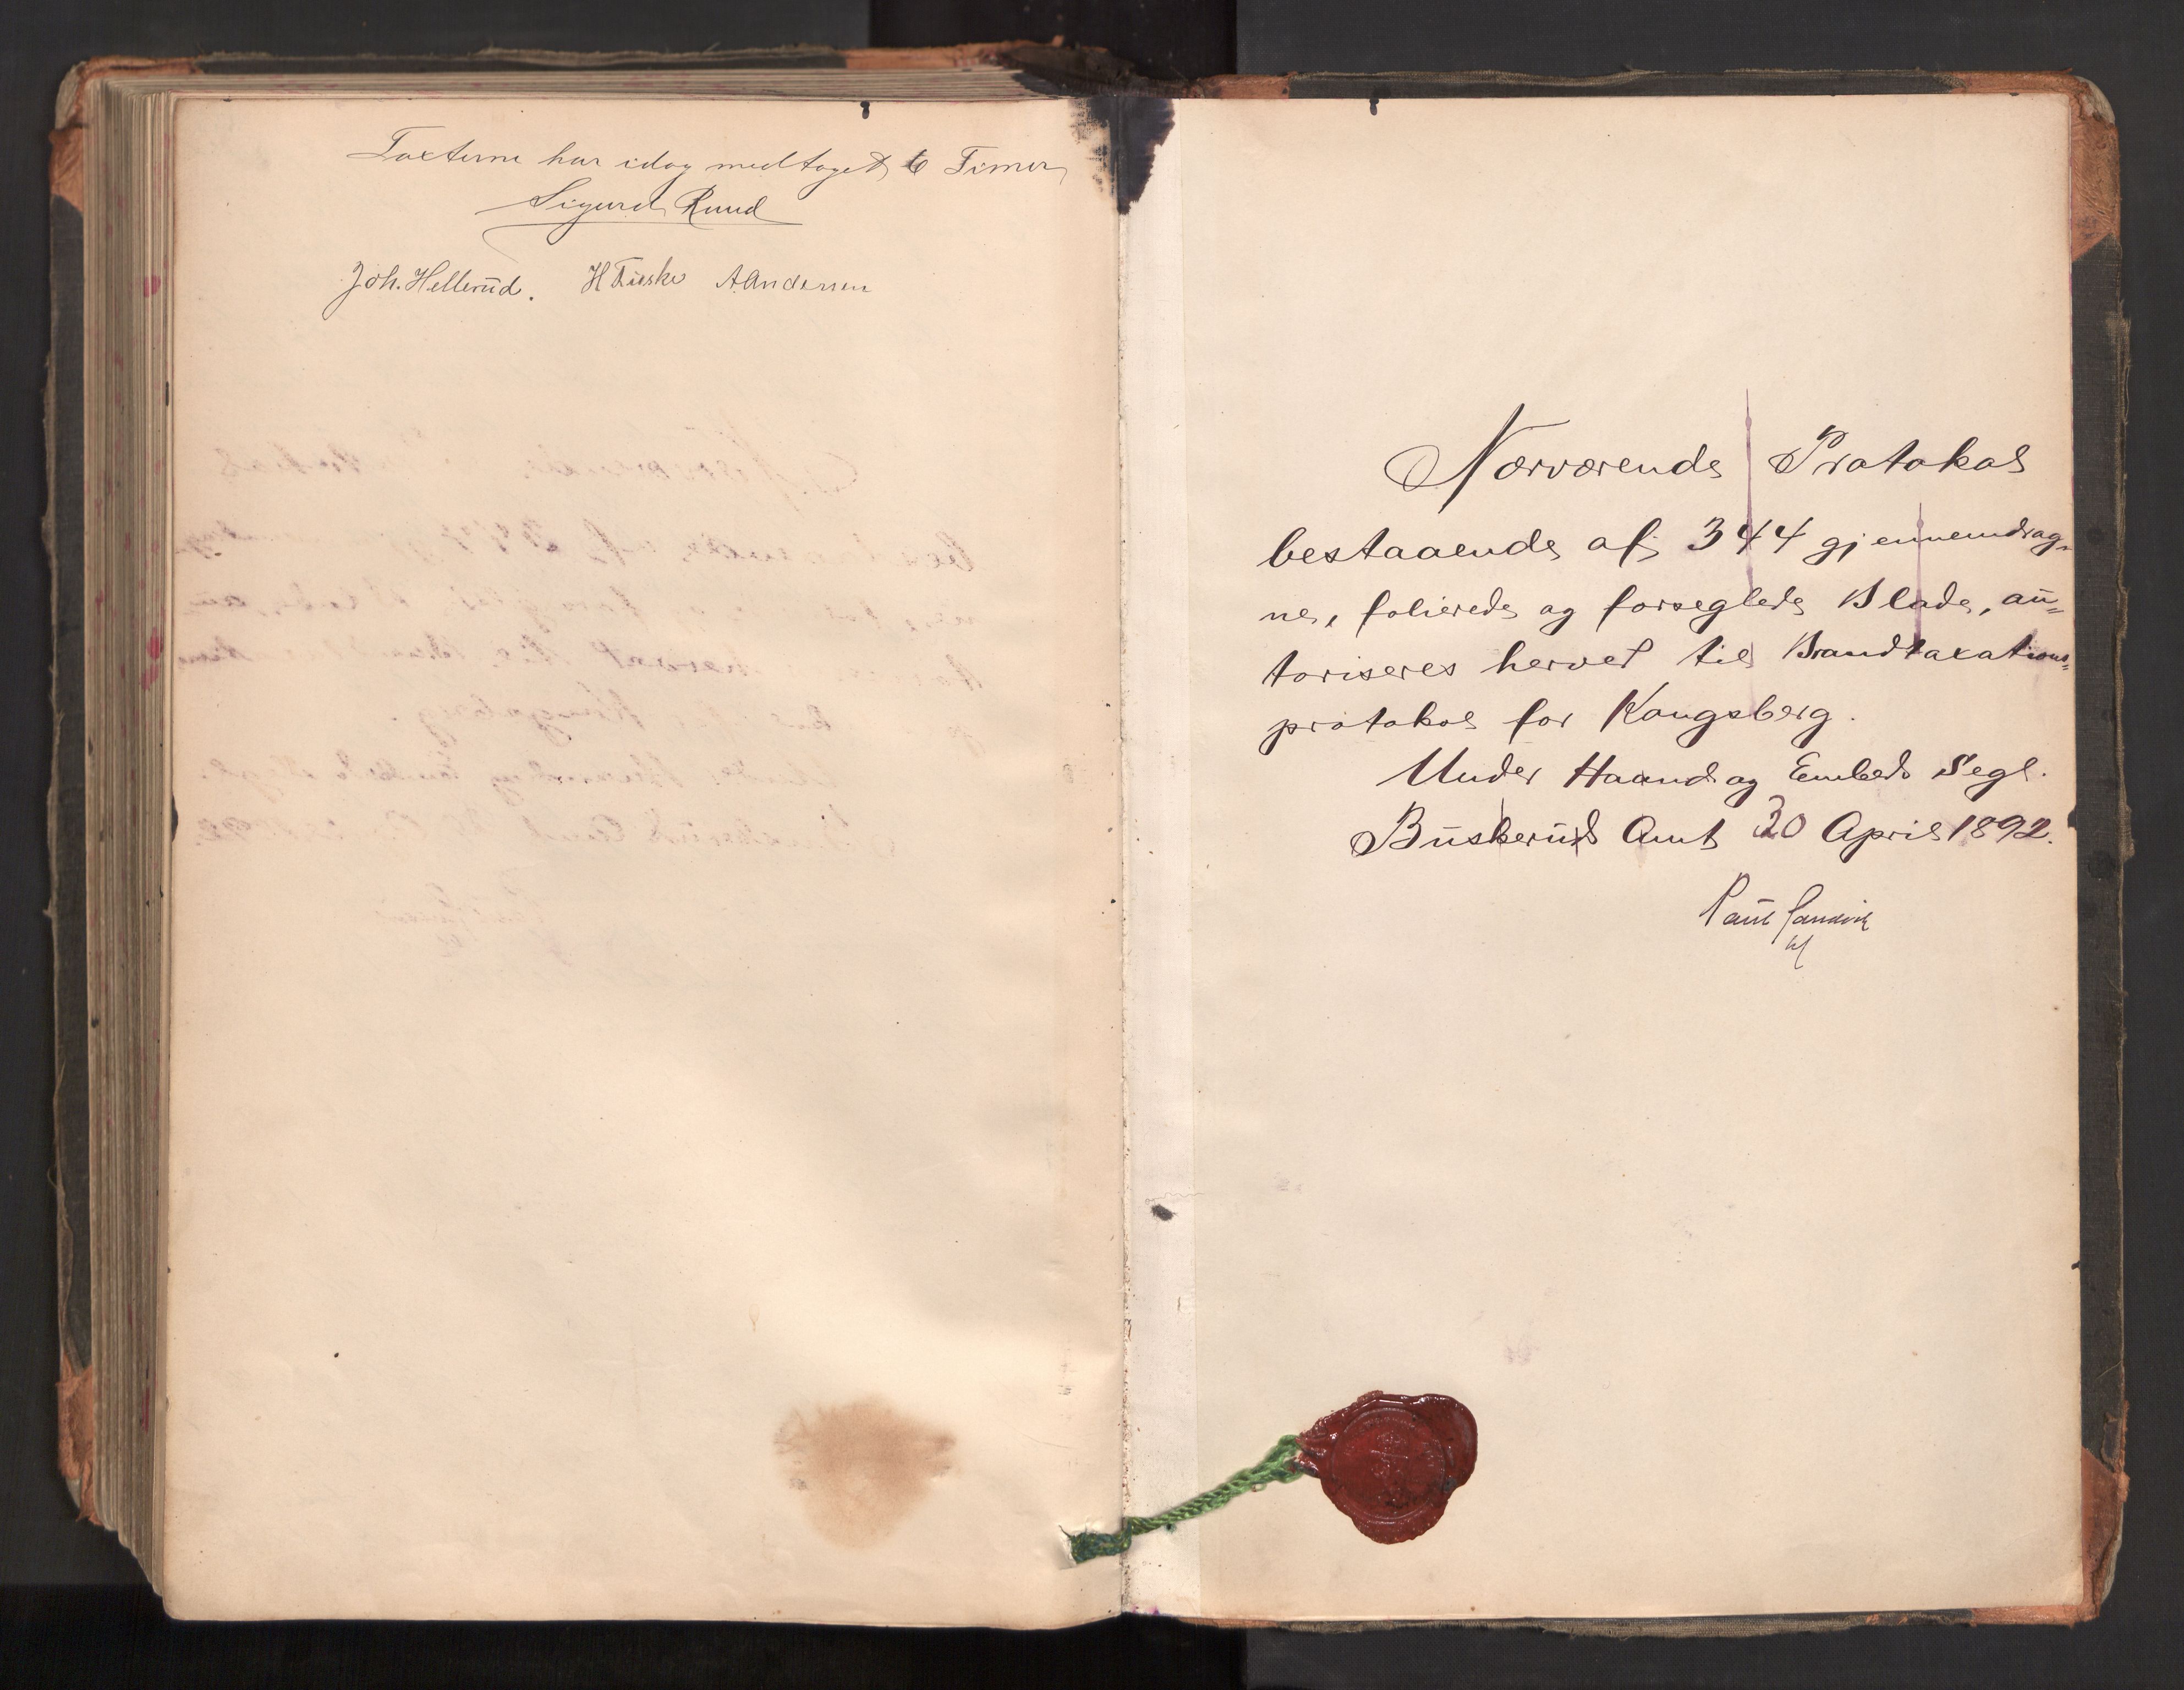 Taxterne har idag medtaget 6 Timer
Sigurd Ruud
Joh. Hellerud. H Fieske A Andersen
Nærværende Protokol
bestaaende af 344 gjennemdrag-
ne, folierede og forseglede Blade, au=
toriseres herved til Brandtaxations=
protokol for Kongsberg.
Under Haand og Embeds Segl.
Buskeruds Amt 20 April 1892.
Paul